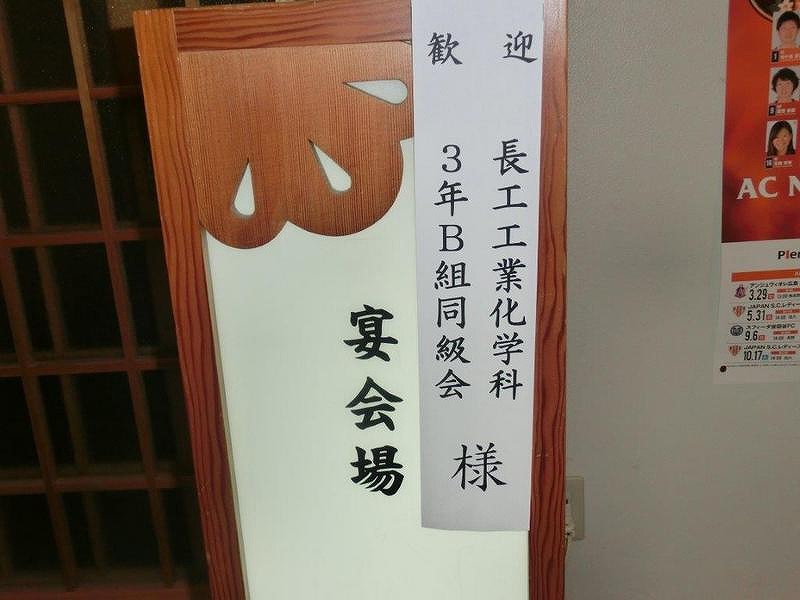 歓迎
長工工業化学科
3年B組同級会
様
宴会場
AC N
アンジュヴィオレ広島
3.29
JAPAN S.C.レディース
5.31
スフィーダ世田谷FC
9.6
JAPAN S.C.レディース
10.17